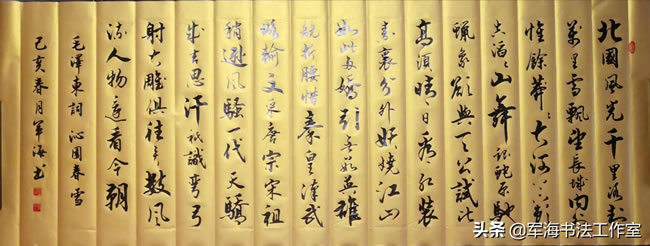 北國風光千里冰封
萬里雪飄望長城内外
惟餘莽々大河上下頓
失滔々山舞銀蛇原馳
蠟象欲與天公試比
高須晴日看紅裝
素裹分外妖嬈江山
如此多嬌引無數英雄
競折腰惜秦皇漢武
略輸文采唐宗宋祖
稍遜風騷一代天驕
成吉思汗祇識彎弓
射大雕俱往矣數風
流人物還看今朝
毛澤東詞 沁園春雪
己亥春月軍海书
头条 @军海书法工作室